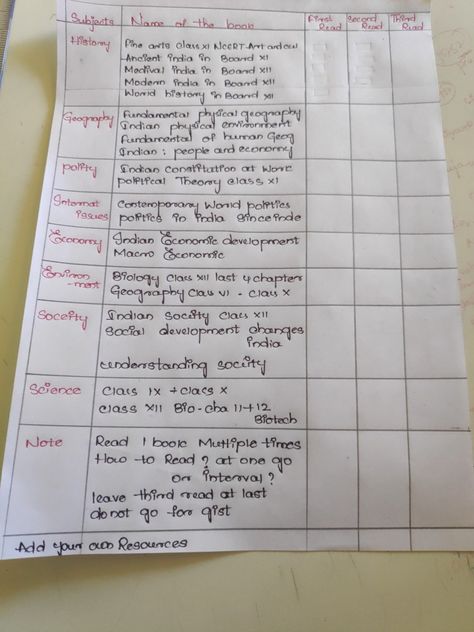 Subjects Name of the book First Read Second Read Third Read
History Fine arts class XI NCERT-Art and cul
Ancient india in Board XI
Medival india in Board XII
Modern india in Board XII
World history in Board XII
Geography Fundamental physical geography
Indian physical environment
Fundamental of human Geog
Indian : people and economy
polity Indian Constitation at Work
political Theory class XI
Internat issues Contemporary World politics
politics in india since inde
Economy Indian Economic development
Macro Economic
Environ -ment Biology Class XII last 4 chapter
Geography Class VI - Class X
Soceity Indian Socity Class XII
Social development changes
india
understanding socity
Science Class IX + class X
class XII Bio-cha 11+12
Biotech
Note Read 1 book Multiple times
How to Read ? at one go
or interval ?
leave third read at last
do not go for gist
Add your own Resources